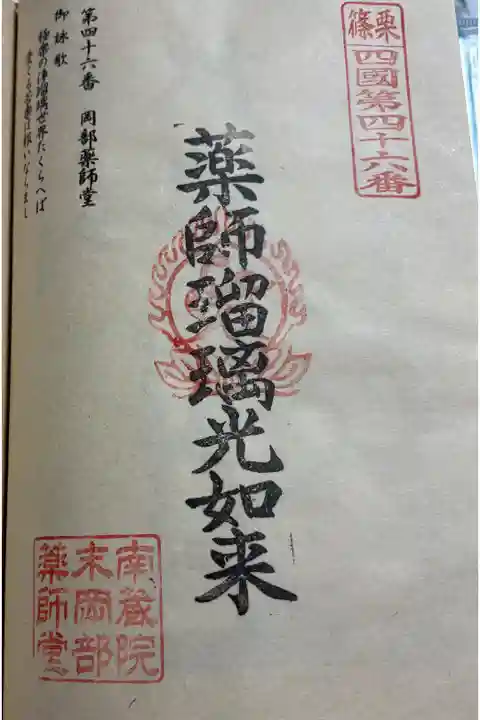 篠栗
四國第四十六番
薬師瑠璃光如来
南蔵院
末岡部
薬師堂
第四十六番 岡部薬師堂
御詠歌
極楽の浄瑠璃世界たくらへば
まくる苦楽は報いならまし